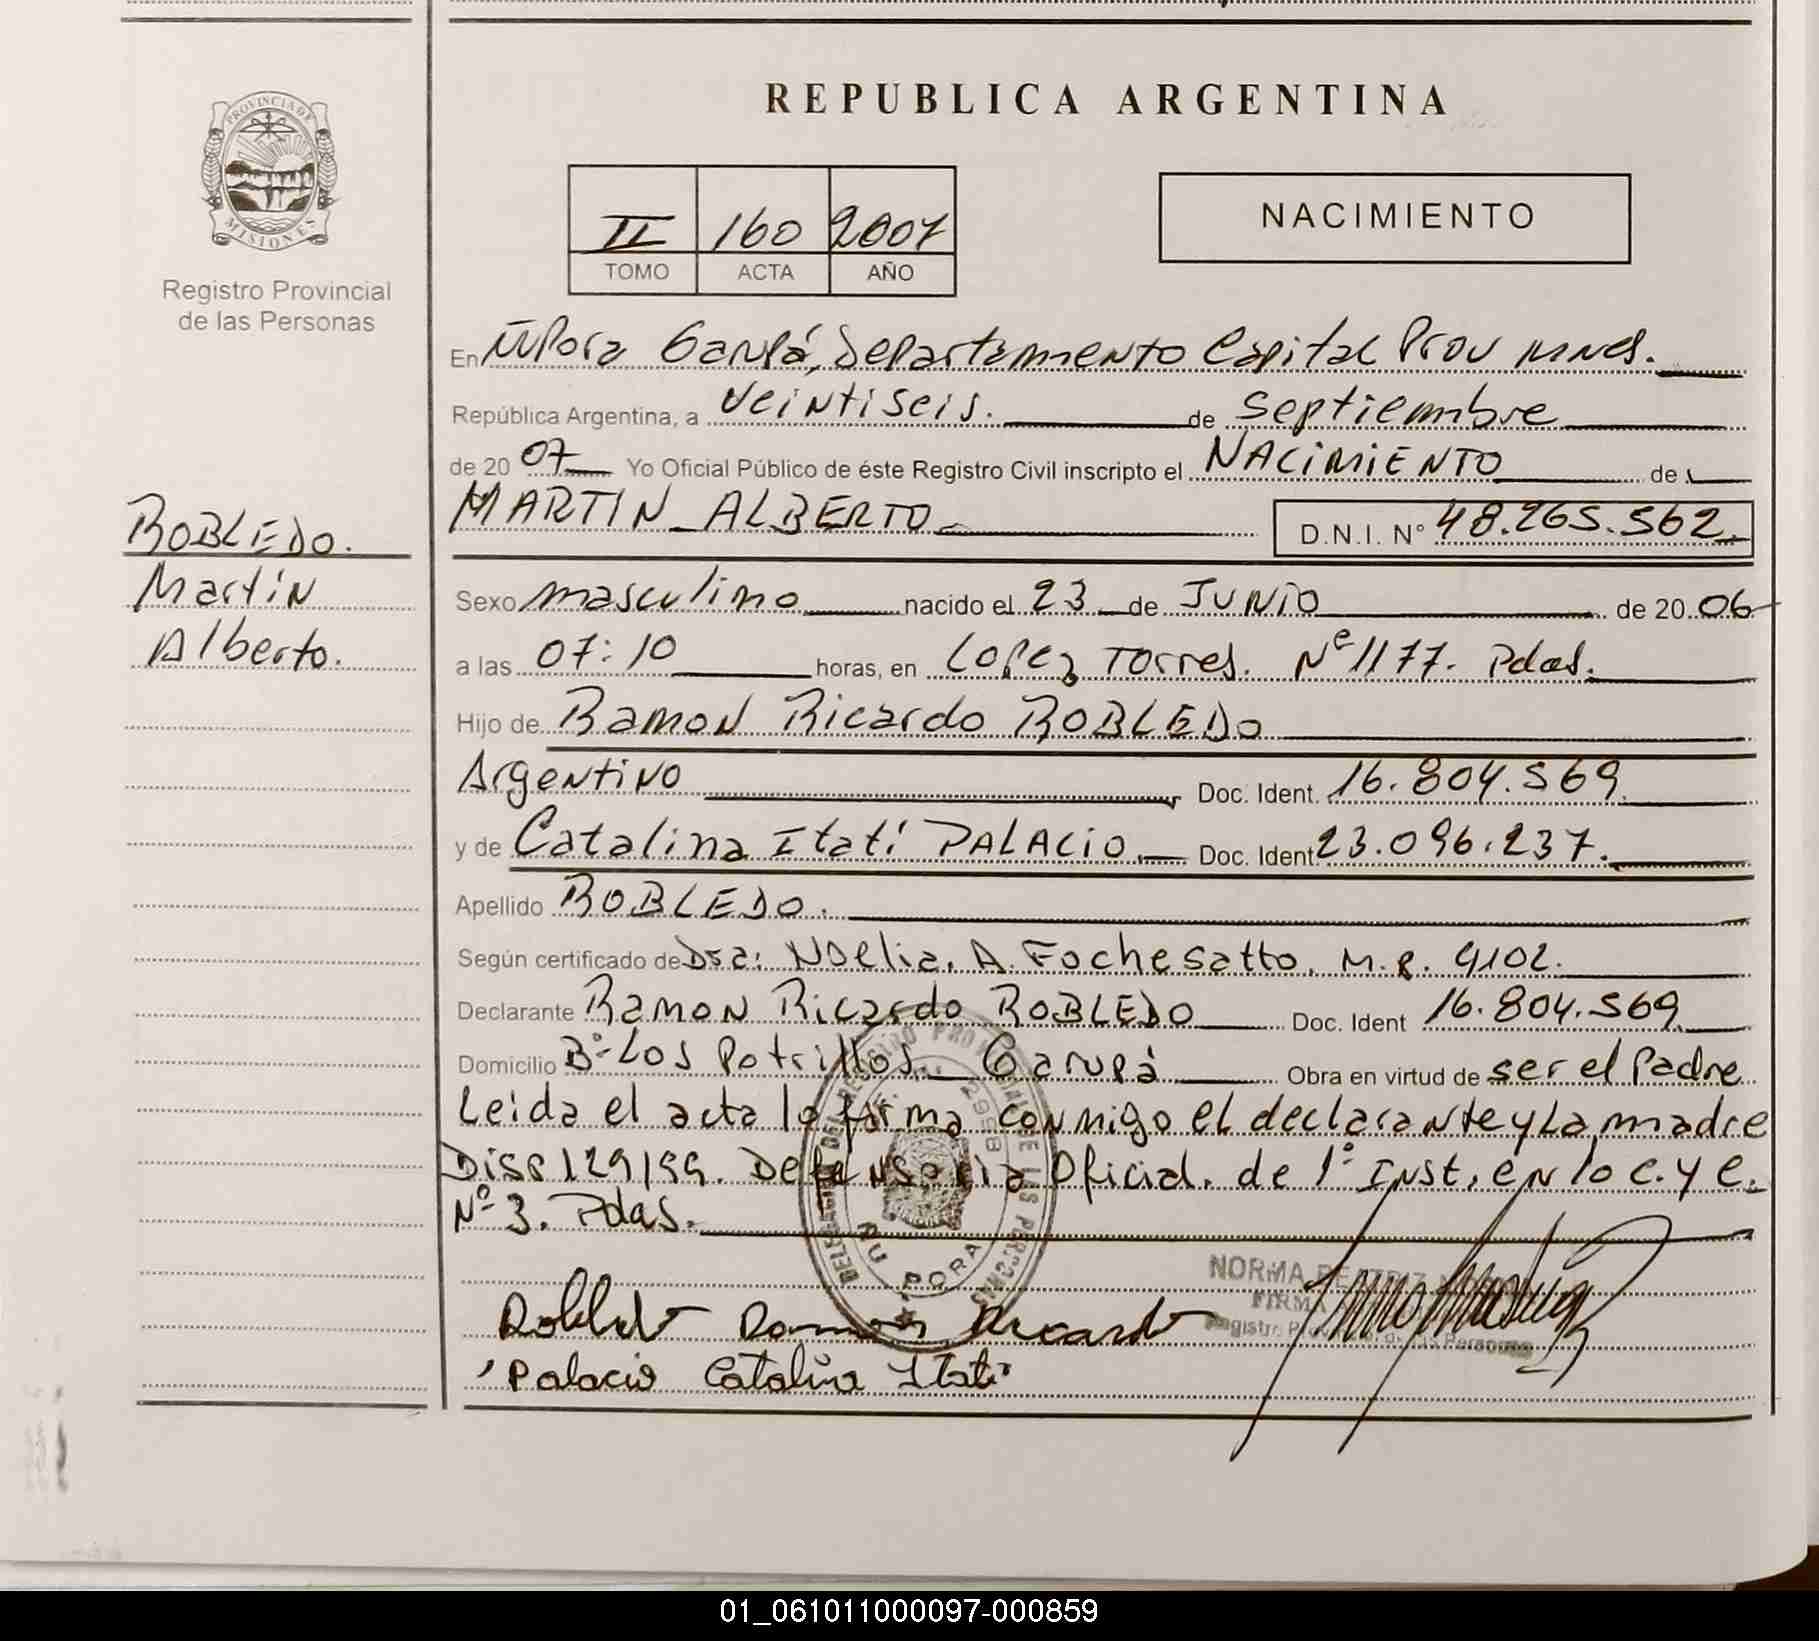 REPUBLICA ARGENTINA
PROVINCIA DE
MISIONES
Registro Provincial
de las Personas
II 160 2007
TOMO ACTA AÑO
NACIMIENTO
En Ñu Pora Garupá, Departamento Capital Prov Mnes.
República Argentina, a veintiseis. de septiembre
de 20 07 Yo Oficial Público de éste Registro Civil inscripto el NACIMIENTO de
MARTIN ALBERTO D.N.I. Nº 48.265.562
ROBLEDO.
Martín
Alberto.
Sexo masculino nacido el 23 de JUNIO de 20 06
a las 07:10 horas, en Lopez Torres. Nº 1177. Pdas.
Hijo de Ramon Ricardo ROBLEDO
Argentino Doc. Ident. 16.804.569
y de Catalina Itatí PALACIO. Doc. Ident 23.096.237.
Apellido ROBLEDO.
Según certificado de Dra: Noelia. A. Fochesatto. M.P. 4102.
Declarante Ramon Ricardo ROBLEDO Doc. Ident 16.804.569
Domicilio Bº Los Potrillos. Garupá Obra en virtud de ser el Padre
Leida el acta la firma conmigo el declarante y la madre
Disp 129/99. Defensoria Oficial. de 1º Inst. en lo C. y C.
Nº 3. Pdas.
REGISTRO PROVINCIAL DE LAS PERSONAS
2998
ÑU PORA
NORMA BEATRIZ
FIRMA
Registro Provincial de las Personas
Robledo Ramon Ricardo
Palacio Catalina Itati
01_061011000097-000859